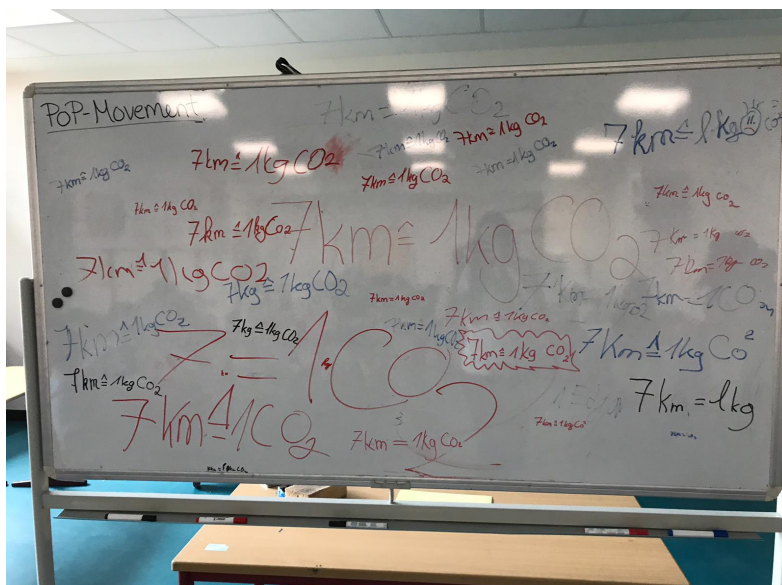 PoP-Movement
7km ≙ 1kg CO2
7km ≙ 1kg CO2
7km ≙ 1kg CO2
7km ≙ 1kg CO2
7km = 1kg CO2
7km ≙ 1kg CO2
7km ≙ 1kg CO2
7km ≙ 1kg CO2
7km ≙ 1kg CO2
7km ≙ 1kg CO2
7km ≙ 1kg CO2
7km = 1kg
7km ≙ 1kg CO2
7km = 1kg CO2
7kg ≙ 1kg CO2
7km = 1kg CO2
7km = 1CO
7km ≙ 1kg CO2
7km ≙ 1kg CO2
7kg ≙ 1kg CO2
7km = 1kg CO2
7km ≙ 1kg CO2
7km ≙ 1kg Co2
7 = 1CO2
7km ≙ 1kg CO2
7km = 1kg
7km ≙ 1CO2
7km = 1kg CO2
7km = 1kg Co